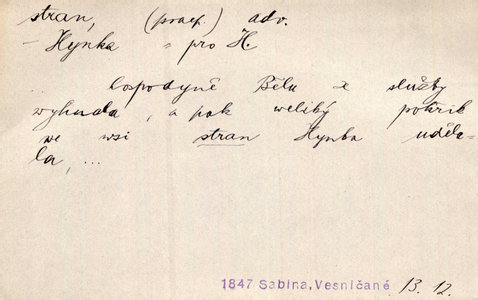 stran, (praep.) adv.
- Hynka = pro H.
hospodyně Bělu z služby
vyhnala, a pak weliký pokřik
we wsi stran Hynka uděla-
la, ...
1847 Sabina, Vesničané 13.12.